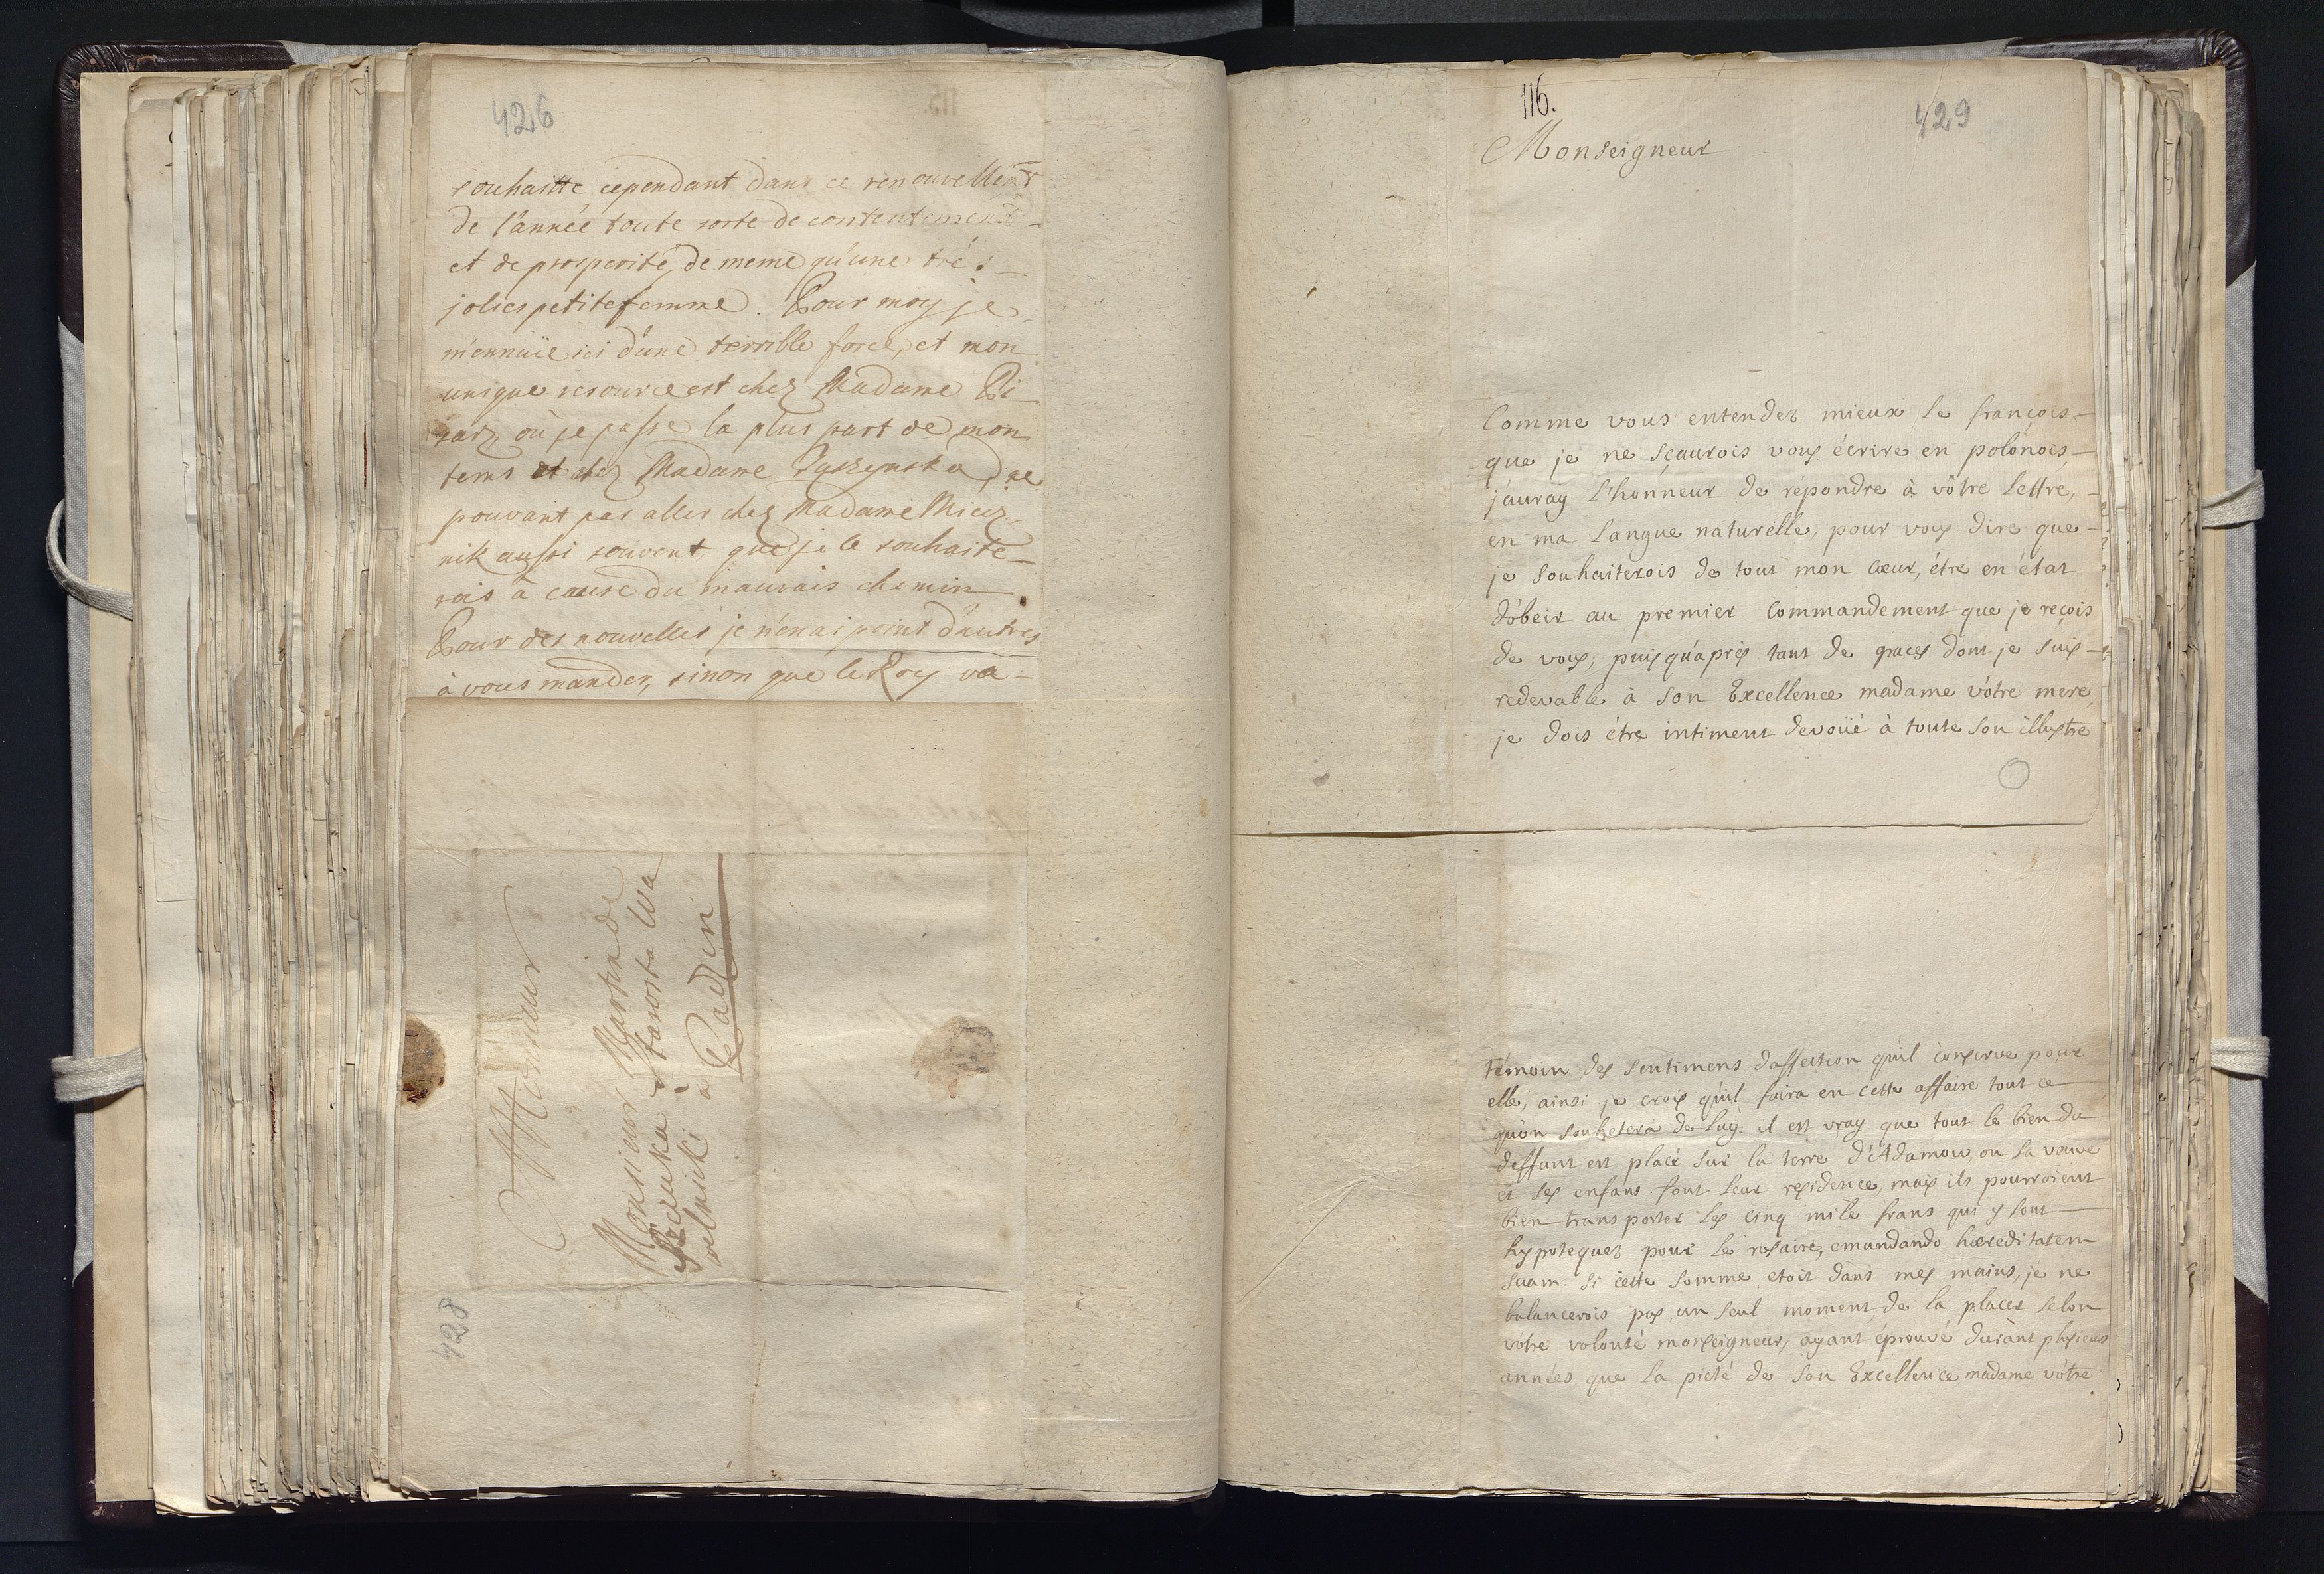 426
souhaitte cependant dans ce renouvellemt
de l'année toute sorte de contentement
et de prosperité, de meme qu'une tré s
jolies petite femme. Pour moy je
m'ennuïe ici d'une terrible force, et mon
unique resource est chez Madame Pi-
sarz, où je passe la plus part de mon
tems et chez Madame ne
pouvant pas aller chez Madame Miecz
nik aussi souvent que je le souhaite-
rois à cause du mauvais chemin.
Pour des nouvelles je n'en ai point d'autres
à vous mander, sinon que le Roy va-
Monsieur
Monsieur Martin de
Szczuka Starosta Wa
welnicki à
Radzin
428
116.
429
Monseigneur
Comme vous entendez mieux le françois-
que je ne sçaurois vous écrire en polonois-
j'auray l'honneur de répondre à vôtre lettre,-
en ma langue naturelle, pour vous dire que-
je souhaiterois de tout mon cœur, étre en état
d'obeir au premier commandement que je reçois
de vous, puis qu'aprés tant de graces dont je suis-
redevable à son Excellence madame vôtre mere,
je dois étre intiment devoüé à toute son illustre
témoin des sentimens d'affection qu'il conserve pour
elle, ainsi je crois qu'il faira en cette affaire tout ce
qu'on souhetera de luy. il est vray que tout le bien du
deffunt est placé sur la terre d'Adamow, ou sa veuve
et ses enfans font leur residence, mais ils pourroient
bien transporter les cinq mile frans qui y sont-
hypotequez pour le rosaire, emundando hæreditatem
suam. si cette somme etoit dans mes mains, je ne
balancerois pas un seul moment de la placer selon
vôtre volonté monseigneur, ayant éprouvé durant plusieurs
années que la pieté de son Excellence madame vôtre